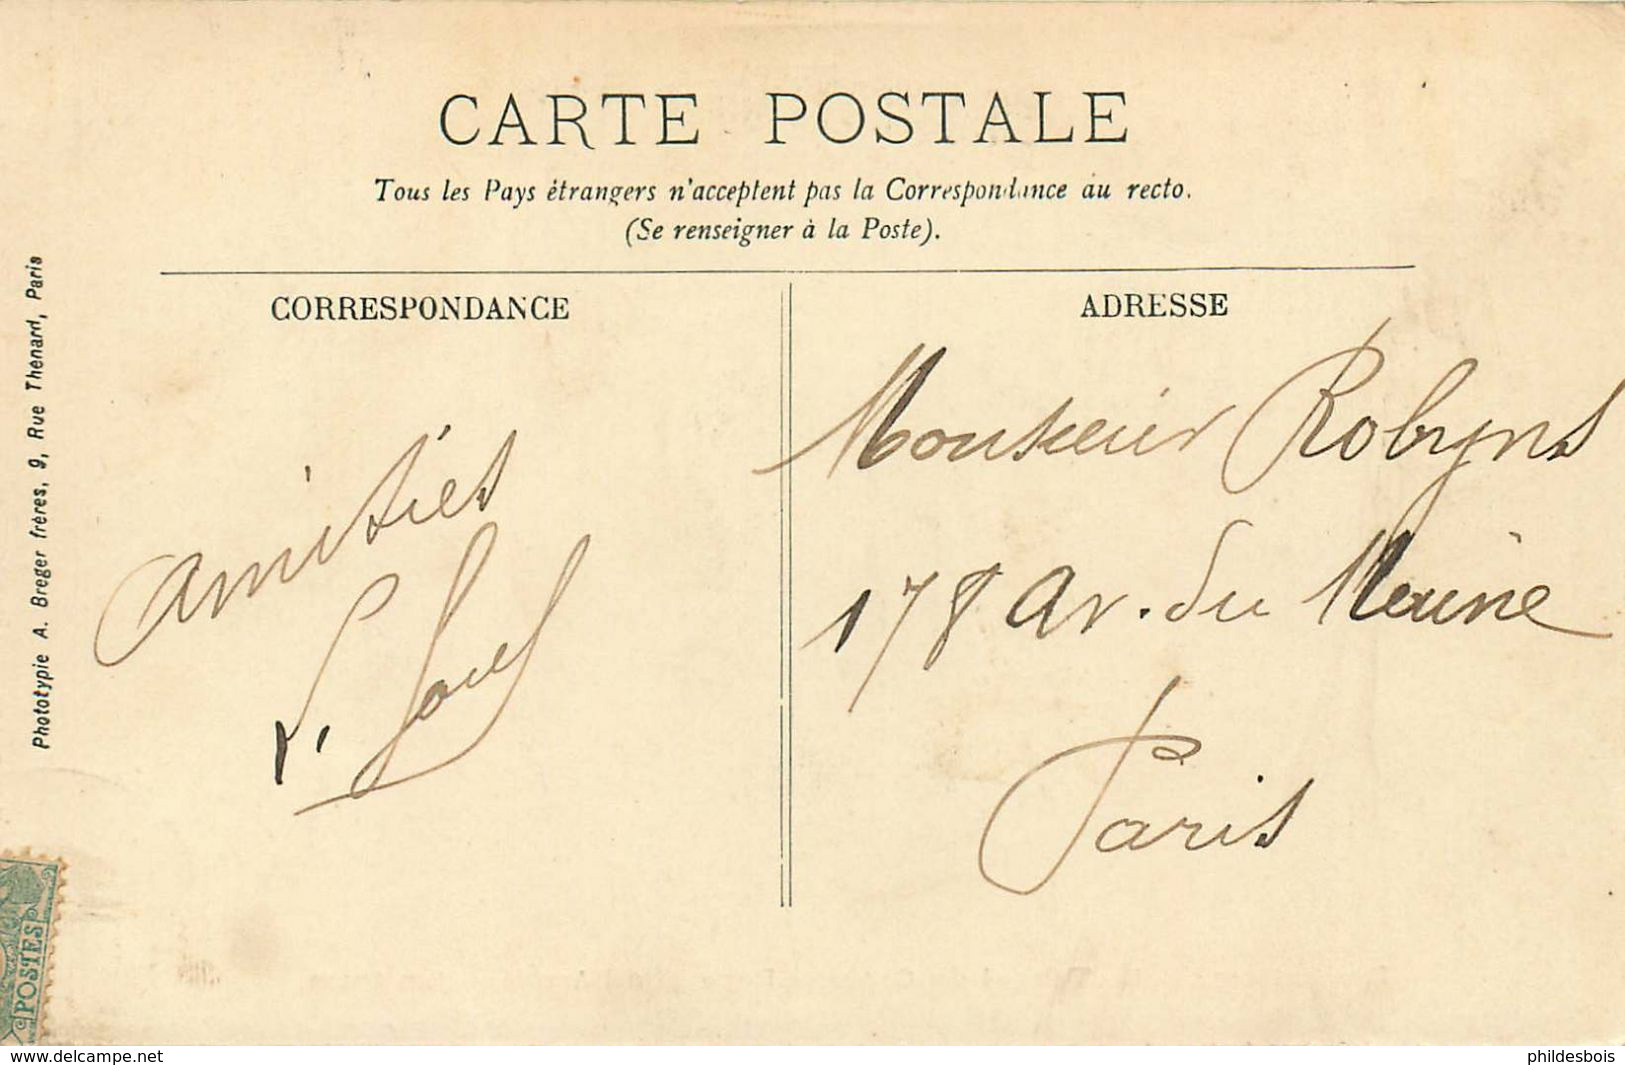 CARTE POSTALE
Tous les Pays étrangers n'acceptent pas la Correspondance au recto.
(Se renseigner à la Poste).
CORRESPONDANCE
amitiés
ADRESSE
Monsieur Robyns
178 Av. du Maine
Paris
Phototypie A. Breger frères, 9, Rue Thénard, Paris
POSTES
www.delcampe.net
phildesbois